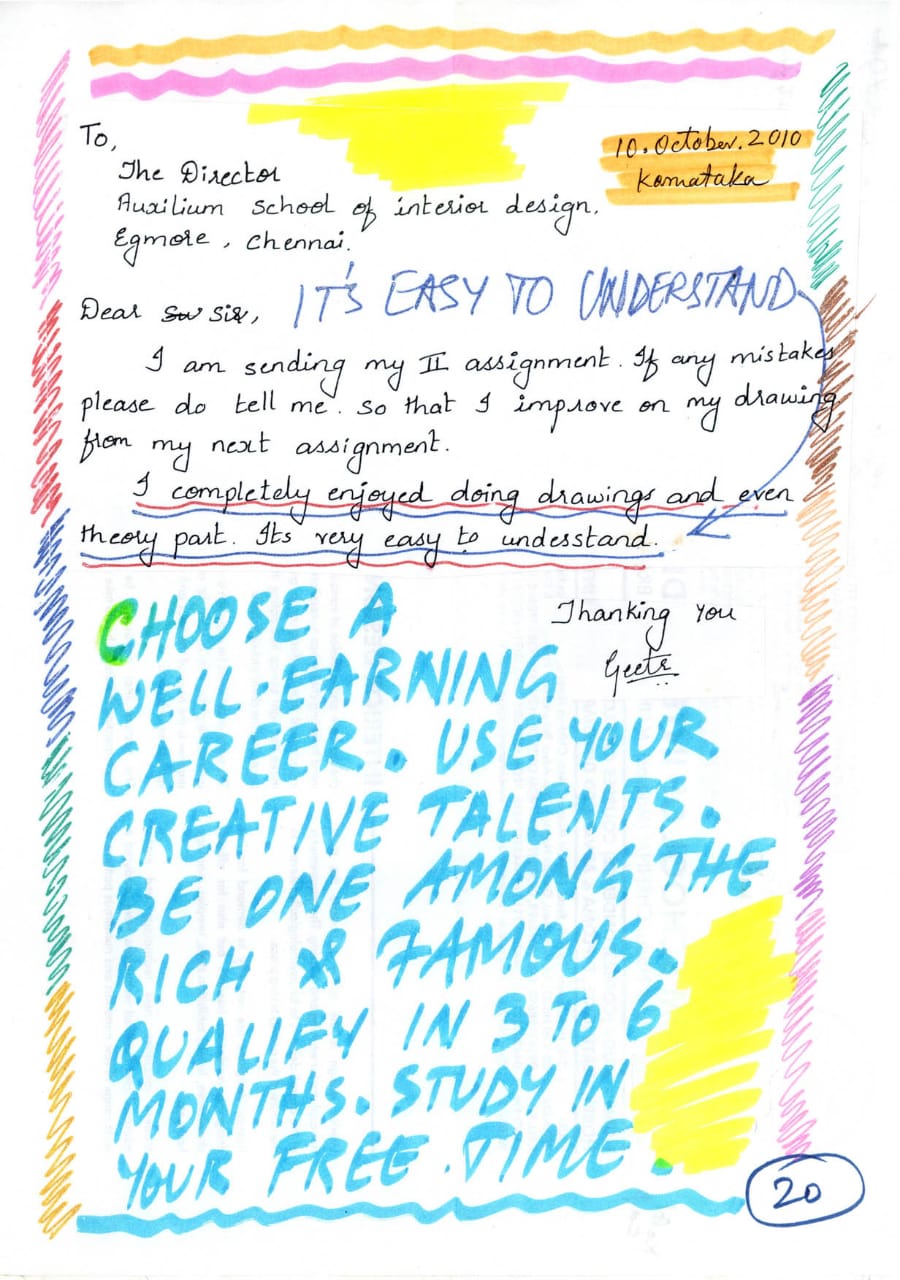 To,
10. October. 2010
Karnataka
The Director
Auxilium school of interior design,
Egmore, Chennai.
Dear Sir,
IT'S EASY TO UNDERSTAND
I am sending my II assignment. If any mistakes
please do tell me. so that I improve on my drawing
from my next assignment.
I completely enjoyed doing drawings and even
theory part. Its very easy to understand.
Thanking you
Geeta
CHOOSE A
WELL-EARNING
CAREER. USE YOUR
CREATIVE TALENTS.
BE ONE AMONG THE
RICH & FAMOUS.
QUALIFY IN 3 TO 6
MONTHS. STUDY IN
YOUR FREE TIME.
20